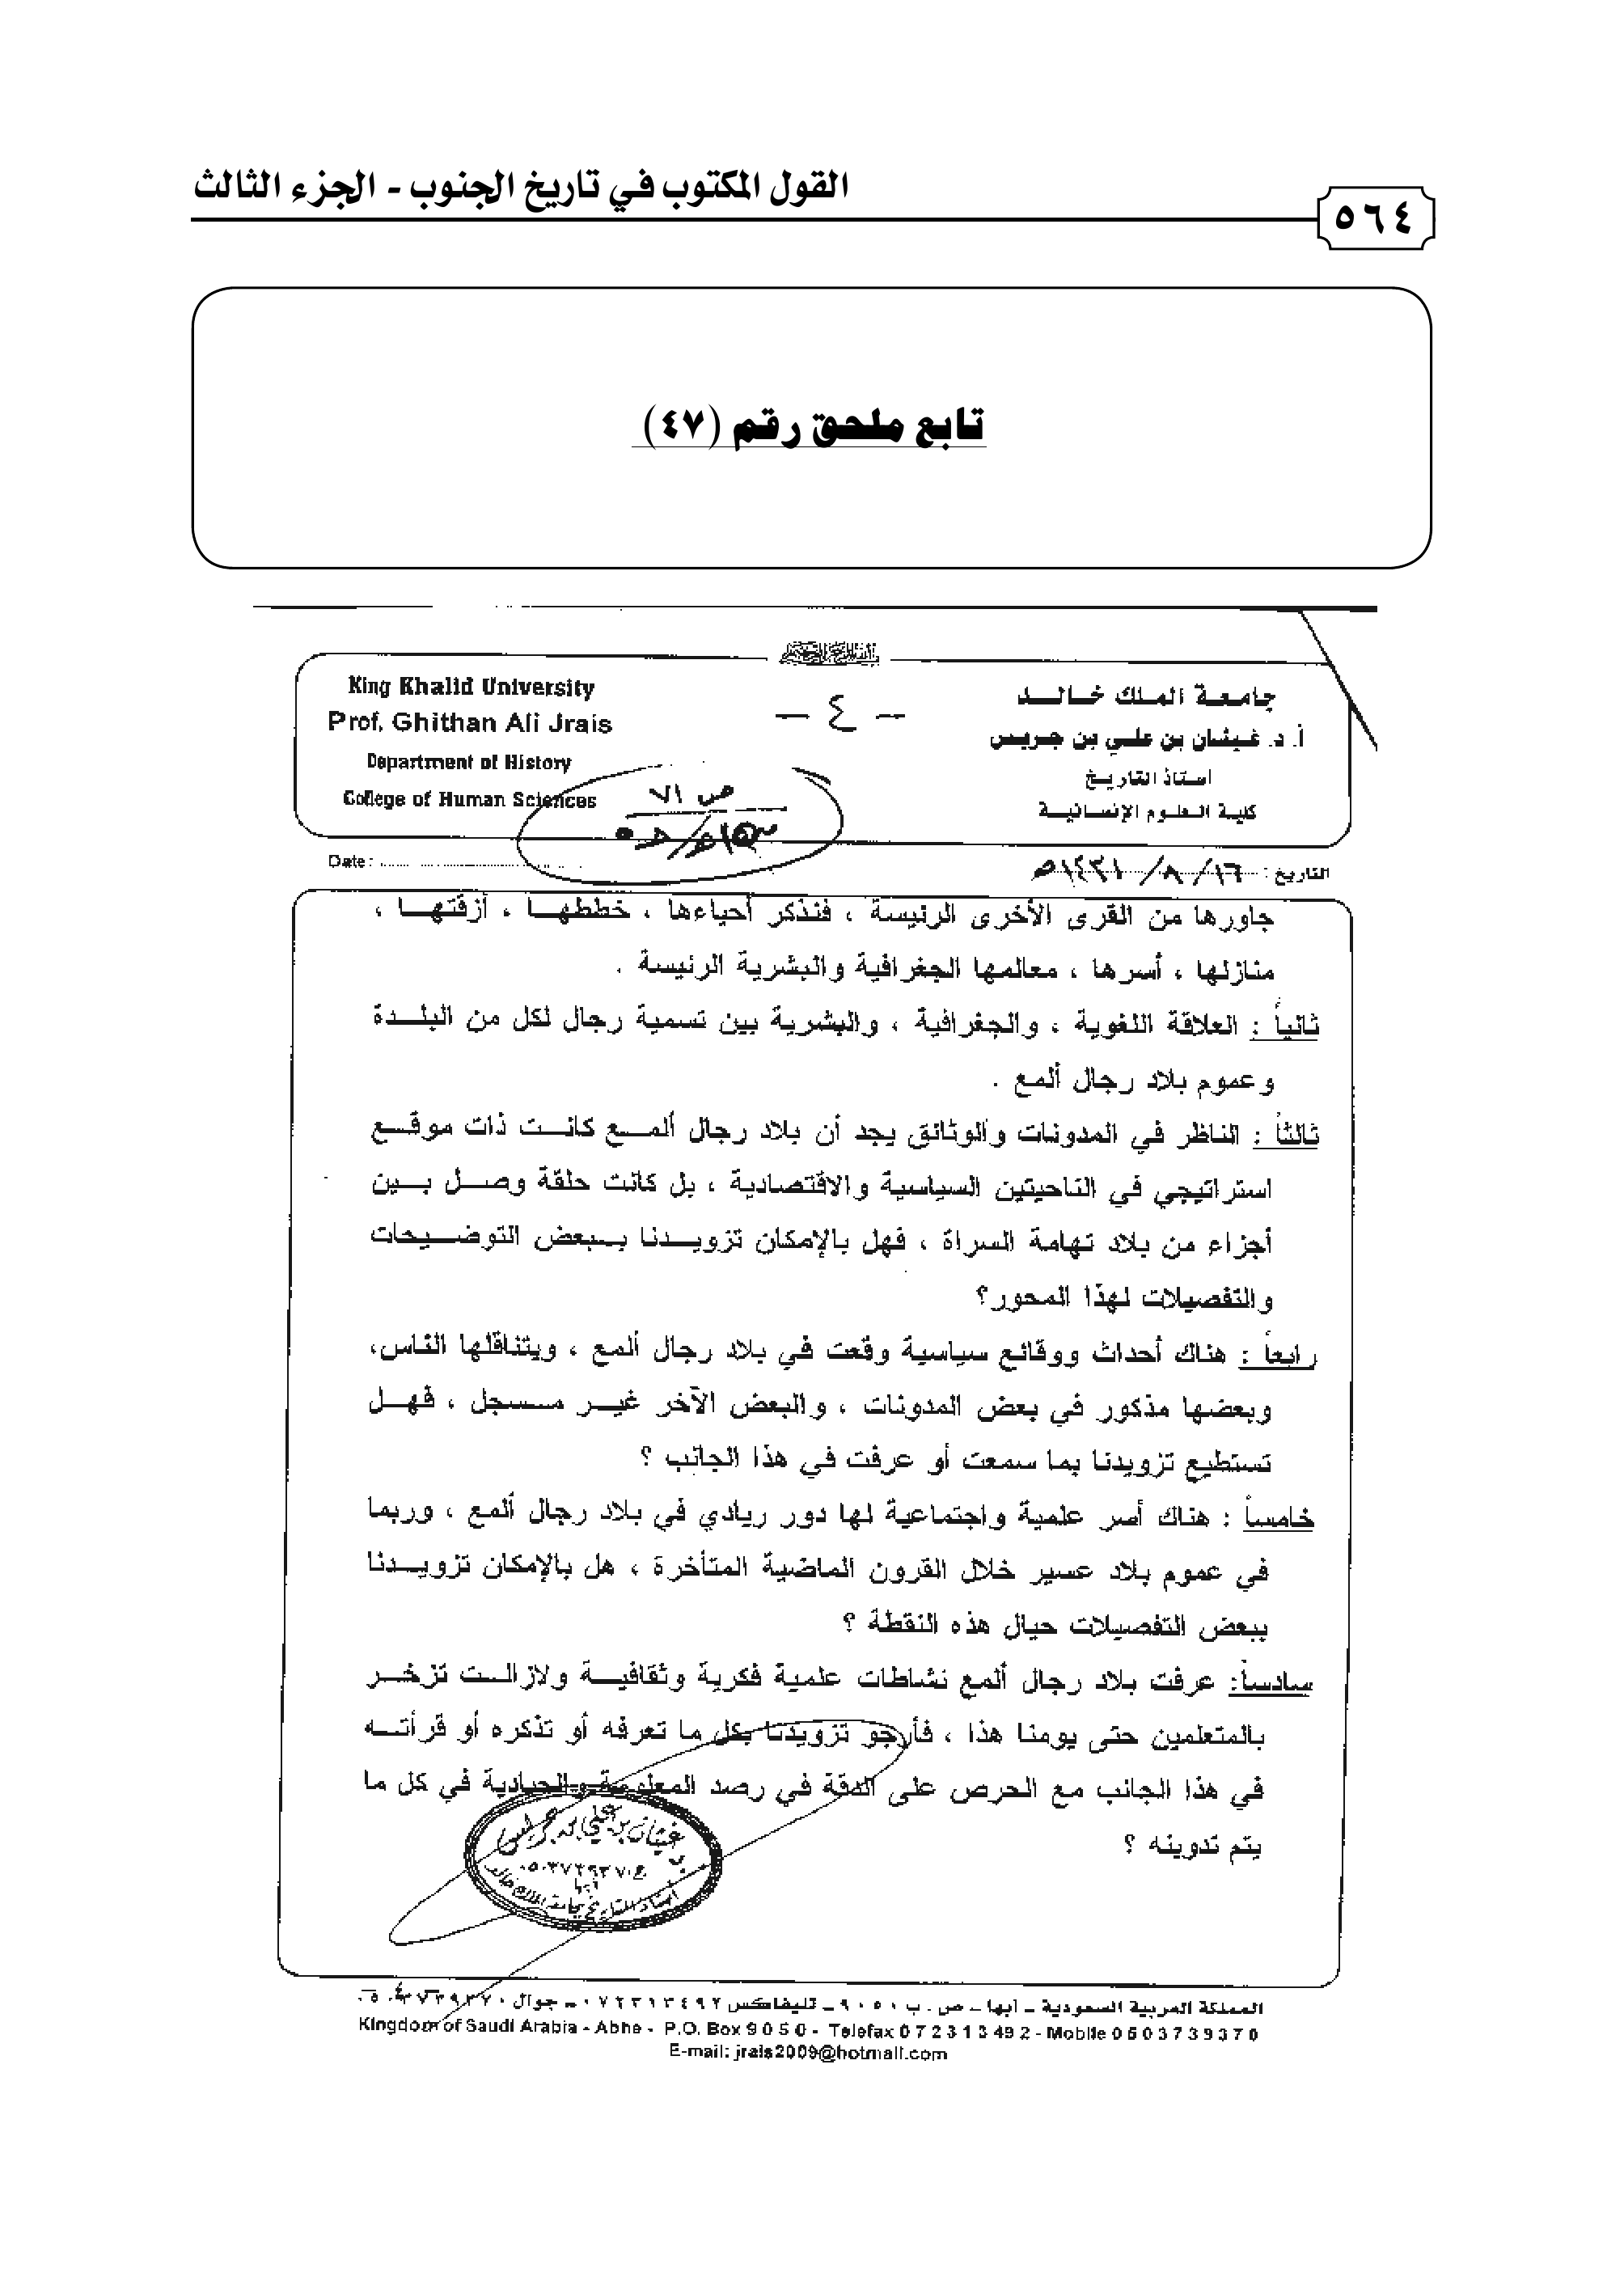 القول المكتوب في تاريخ الجنوب - الجزء الثالث
٥٦٤
تابع ملحق رقم (٤٧)
جامعة الملك خالد
أ. د. غيثان بن علي بن جريس
استاذ التاريخ
كلية العلوم الإنسانية
- ٤ -
King Khalid University
Prof. Ghithan Ali Jrais
Department of History
College of Human Sciences
ص ٧١
التاريخ : ١٦/ ٨/ ١٤٣١هـ
Date :
جاورها من القرى الأخرى الرئيسة ، فنذكر أحياءها ، خططها ، أزقتها ،
منازلها ، أسرها ، معالمها الجغرافية والبشرية الرئيسة .
ثانياً : العلاقة اللغوية ، والجغرافية ، والبشرية بين تسمية رجال لكل من البلدة
وعموم بلاد رجال ألمع .
ثالثاً : الناظر في المدونات والوثائق يجد أن بلاد رجال ألمع كانت ذات موقع
استراتيجي في الناحيتين السياسية والاقتصادية ، بل كانت حلقة وصل بين
أجزاء من بلاد تهامة السراة ، فهل بالإمكان تزويدنا ببعض التوضيحات
والتفصيلات لهذا المحور؟
رابعاً : هناك أحداث ووقائع سياسية وقعت في بلاد رجال ألمع ، ويتناقلها الناس،
وبعضها مذكور في بعض المدونات ، والبعض الآخر غير مسجل ، فهل
تستطيع تزويدنا بما سمعت أو عرفت في هذا الجانب ؟
خامساً : هناك أسر علمية واجتماعية لها دور ريادي في بلاد رجال ألمع ، وربما
في عموم بلاد عسير خلال القرون الماضية المتأخرة ، هل بالإمكان تزويدنا
ببعض التفصيلات حيال هذه النقطة ؟
سادساً: عرفت بلاد رجال ألمع نشاطات علمية فكرية وثقافية ولازالت تزخر
بالمتعلمين حتى يومنا هذا ، فأرجو تزويدنا بكل ما تعرفه أو تذكره أو قرأته
في هذا الجانب مع الحرص على الدقة في رصد المعلومة والحيادية في كل ما
يتم تدوينه ؟
غيثان بن علي بن جريس
أبها
أستاذ التاريخ بجامعة الملك خالد
- ٤ -
المملكة العربية السعودية – أبها – ص . ب ٩٠٥٠ – تليفاكس ٠٧٢٣١٣٤٩٢ – جوال ٠٥٠٣٧٣٩٣٧٠
Kingdom of Saudi Arabia - Abhe - P.O. Box 9 0 5 0 - Telefax 0 7 2 3 1 3 4 9 2 - Mobile 0 5 0 3 7 3 9 3 7 0
E-mail: jrais2009@hotmail.com